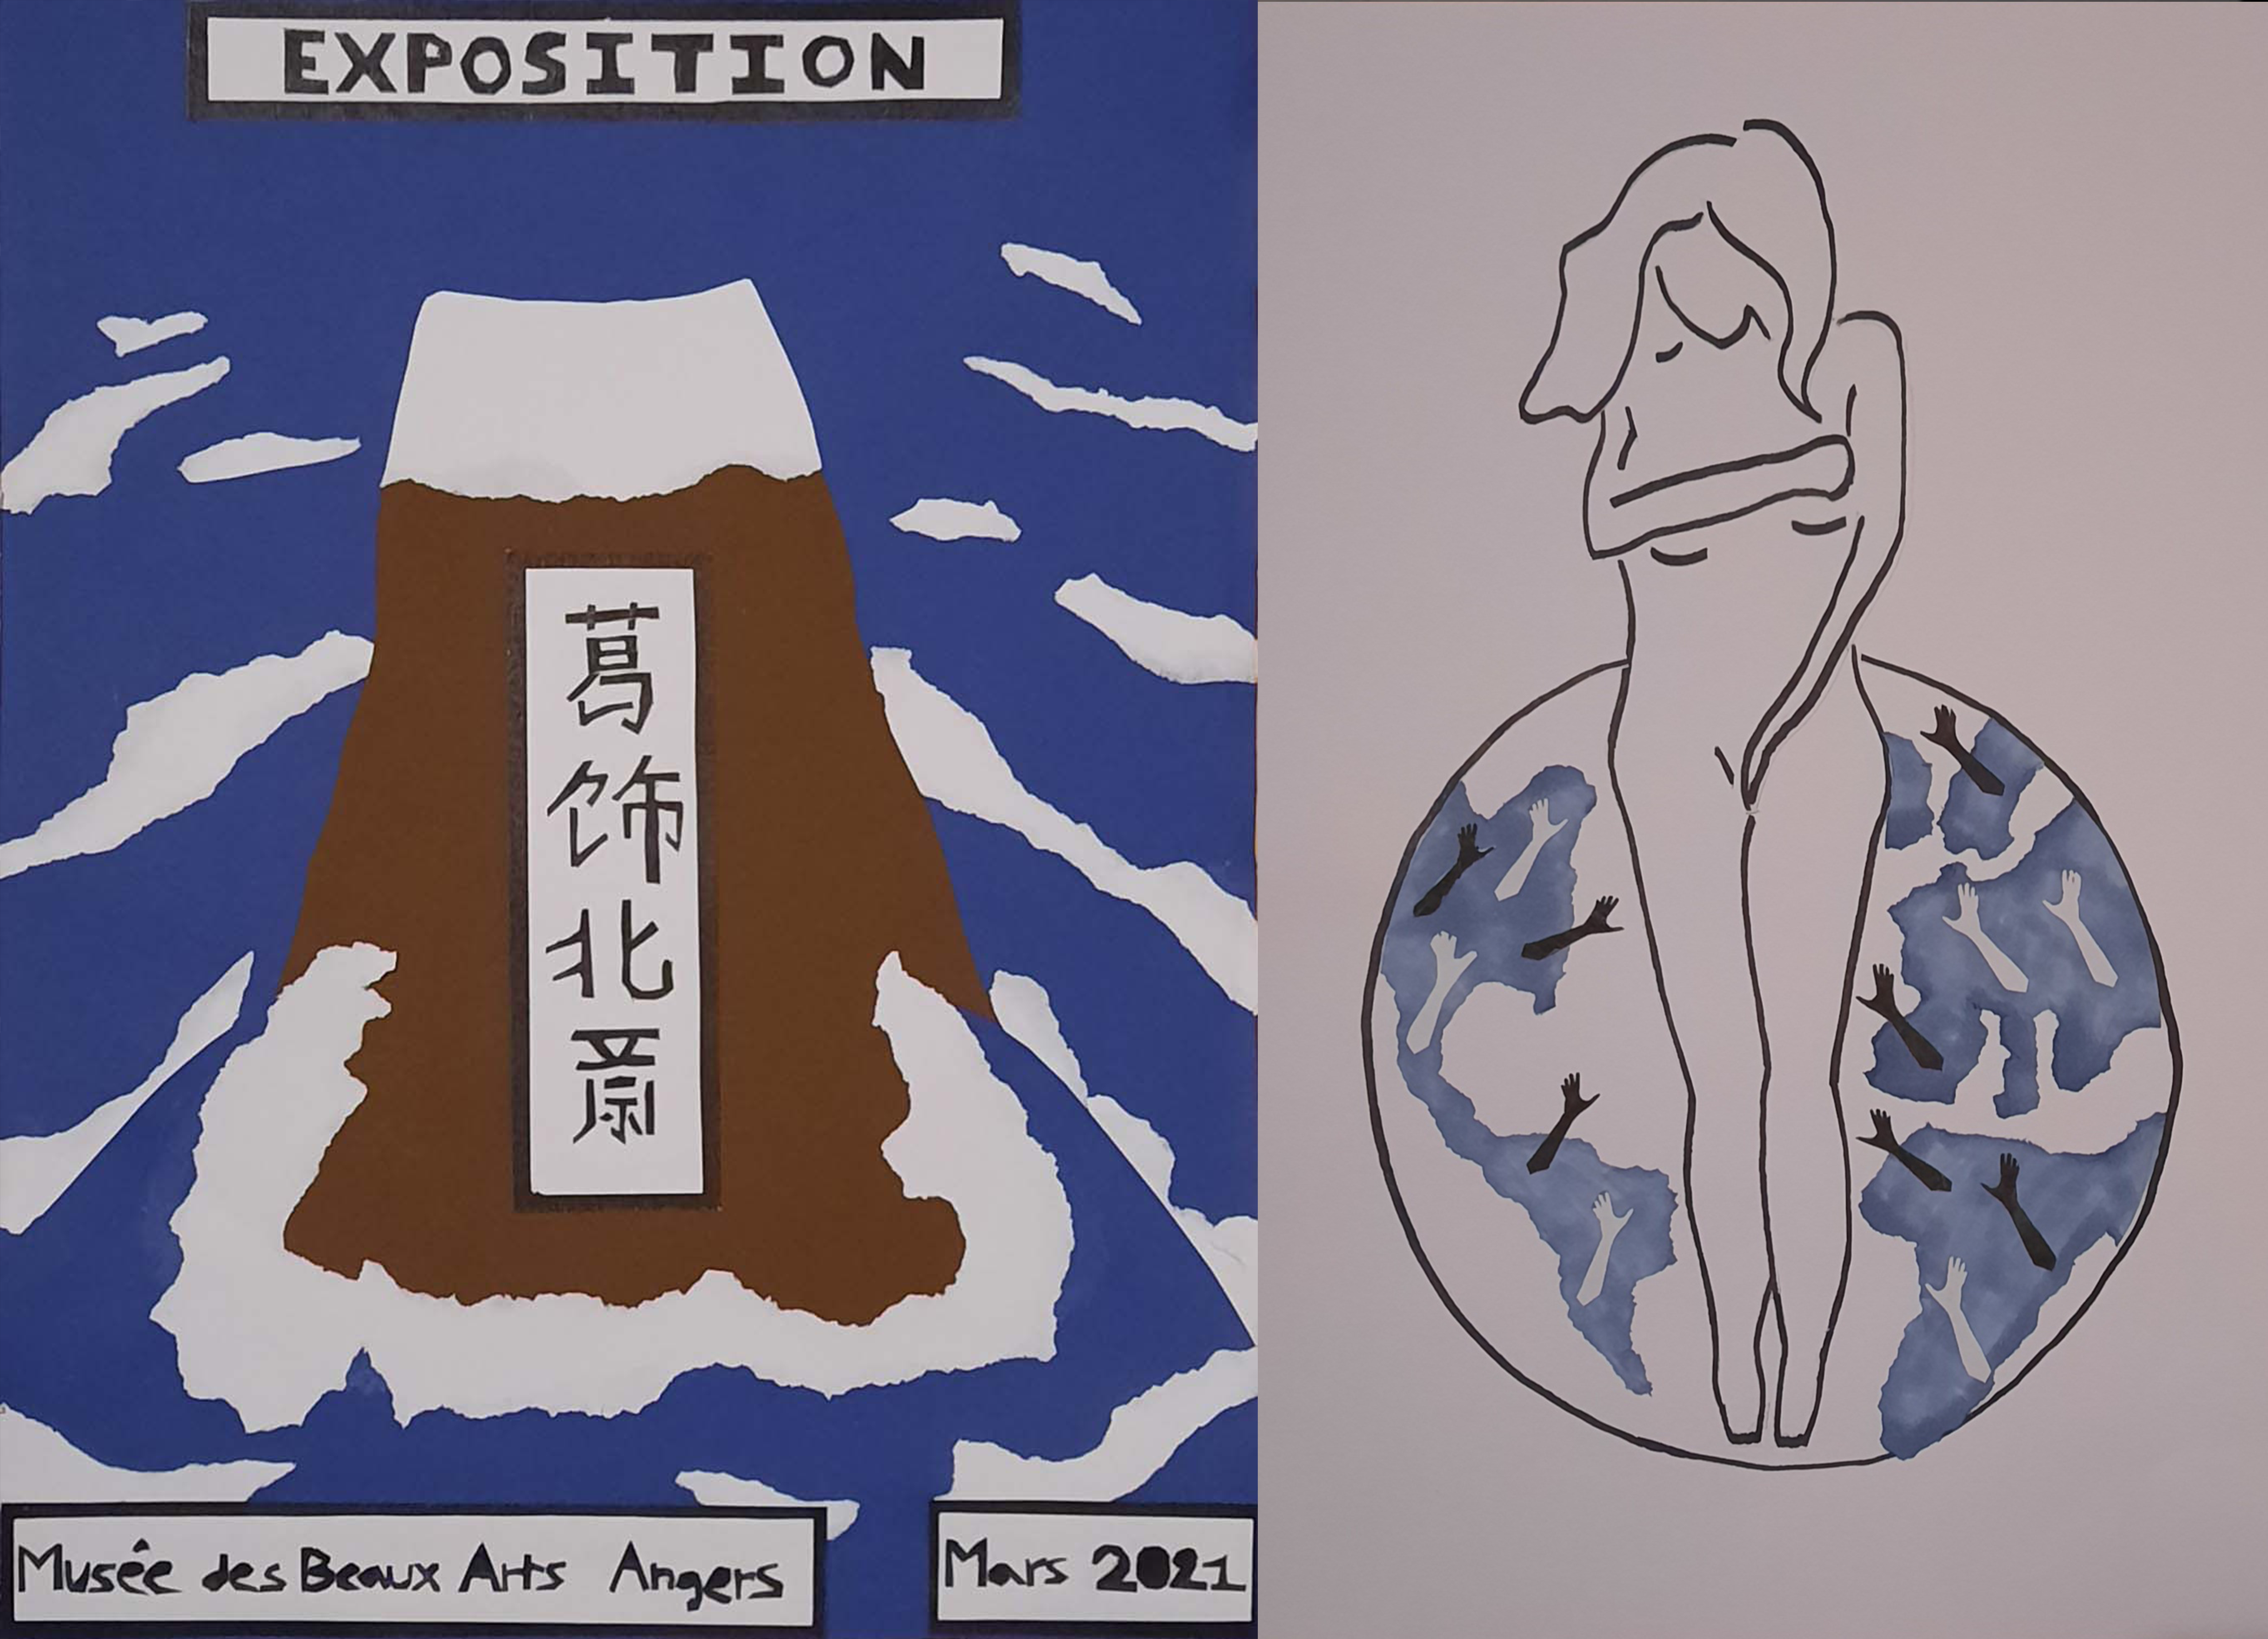 EXPOSITION
葛
饰
北
斎
Musée des Beaux Arts Angers
Mars 2021